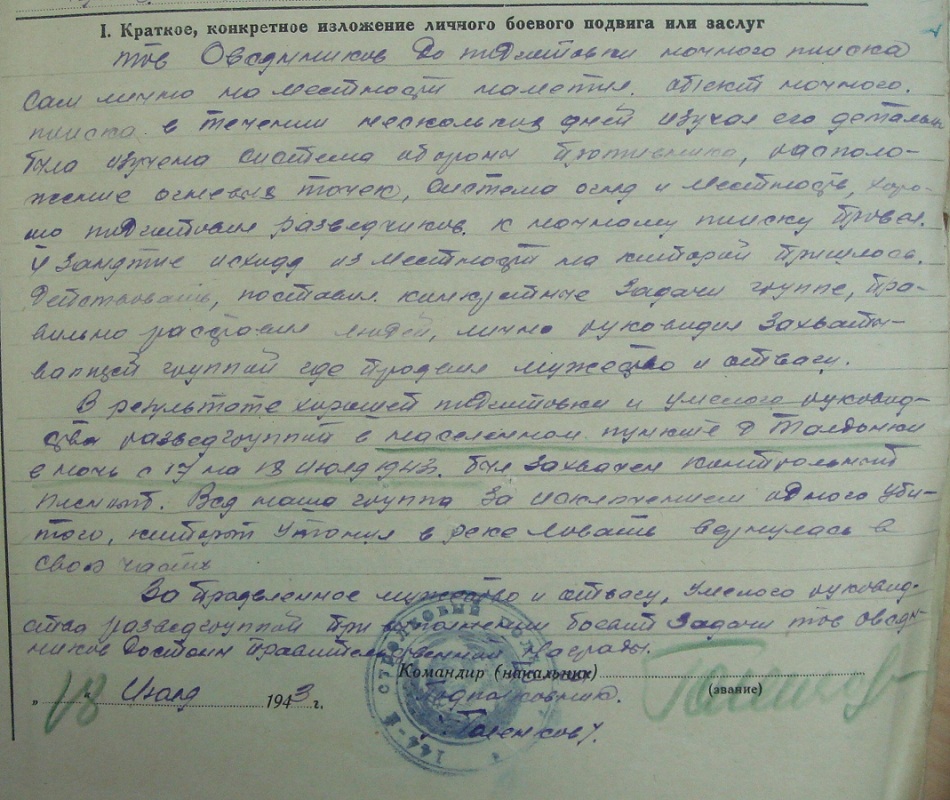 I. Краткое, конкретное изложение личного боевого подвига или заслуг
тов Овадников До подготовки ночного поиска
сам лично на местности наметил. объект ночного.
поиска в течении нескольких дней изучал его детально
была изучена система обороны противника, располо-
жение огневых точек, система огня и местность, хоро-
шо подготовил разведчиков. к ночному поиску провел.
4 занятие исходя из местности на которой пришлось.
действовать, поставил конкретные задачи группе, пра-
вильно расставил людей, лично руководил захваты-
вающей группой где проявил мужество и отвагу.
В результате хорошей подготовки и умелого руковод-
ства разведгруппой в населенном пункте д
в ночь с 17 на 18 июля 1943. был захвачен контрольный
пленный. Вся наша группа за исключением одного уби-
того, который утонул в реке Ловать вернулась в
свою часть
За проявленное мужество и отвагу, умелого руковод-
ства разведгруппой при выполнении боевой задачи тов Овад-
ников достоин правительственной награды.
Командир (начальник)
(звание)
„18“ Июля 1943 г.
Подполковник.
144-Й СТРЕЛКОВЫЙ ПОЛК